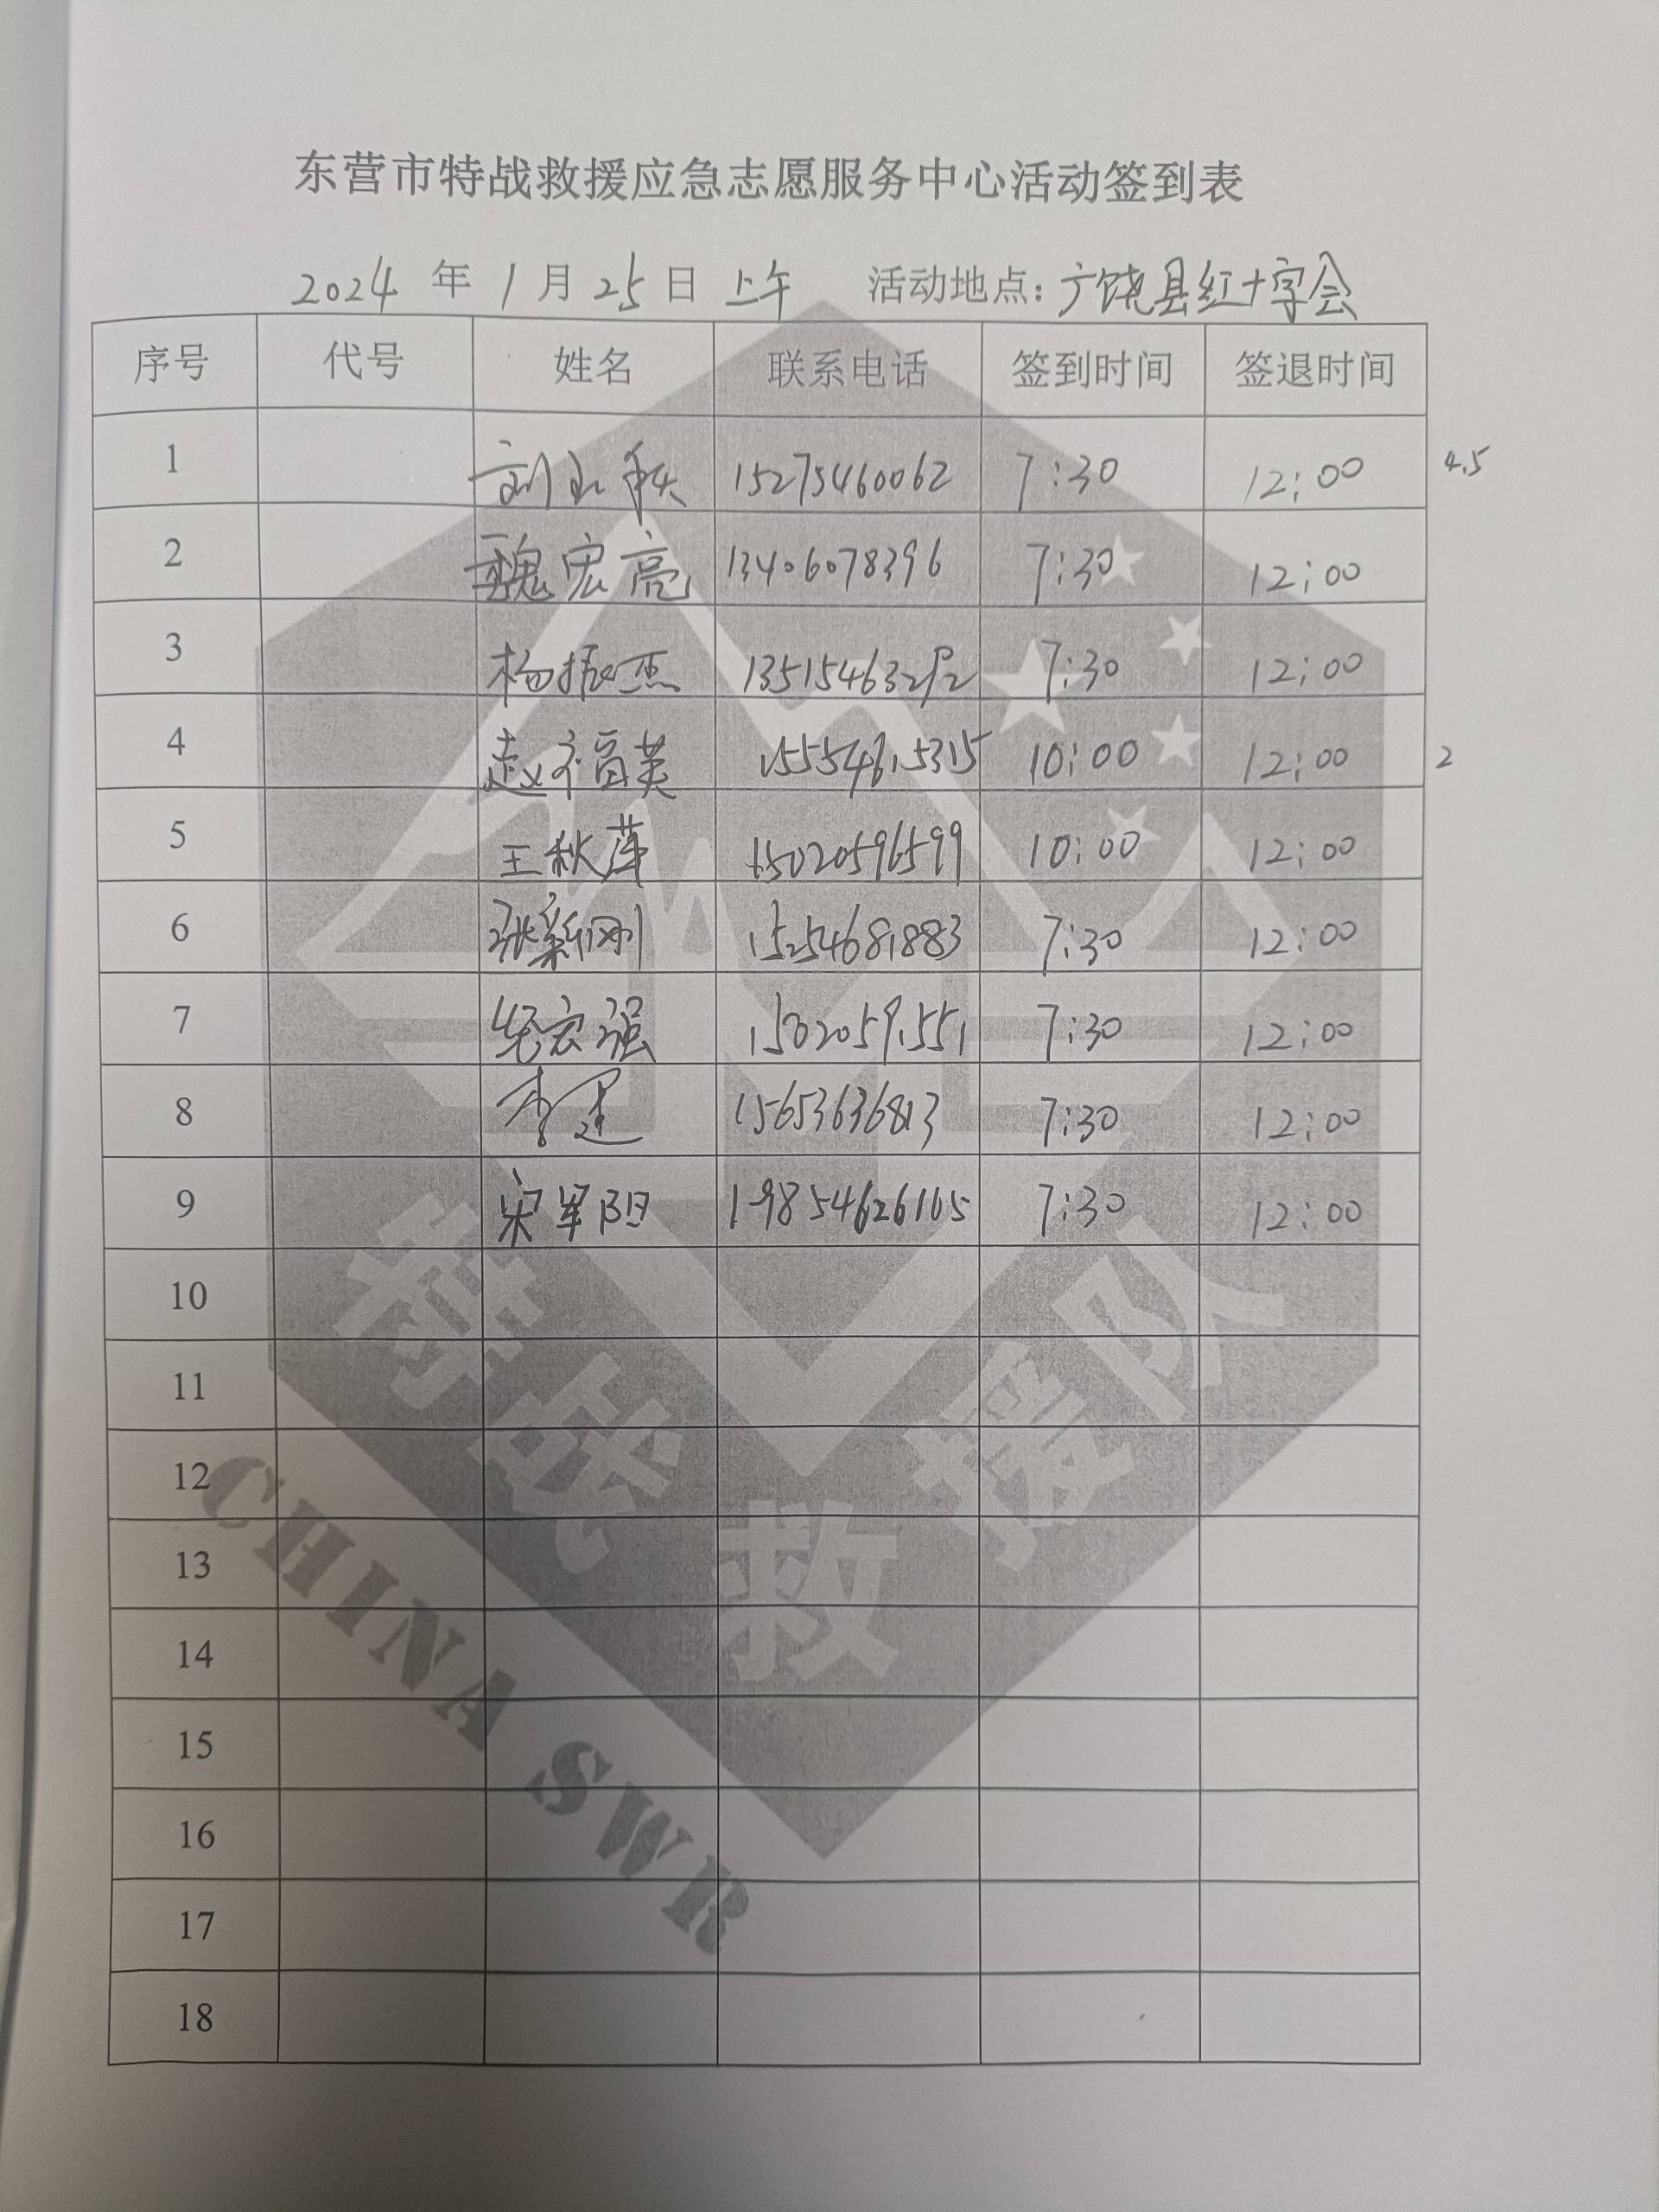 东营市特战救援应急志愿服务中心活动签到表
2024 年 1 月 25 日 上午 活动地点: 广饶县红十字会
序号 代号 姓名 联系电话 签到时间 签退时间
1 刘 15275460062 7:30 12:00 4.5
2 魏宏亮 13406078396 7:30 12:00
3 杨振杰 7:30 12:00
4 赵福英 15554615315 10:00 12:00 2
5 王秋萍 15020596599 10:00 12:00
6 张新刚 15254681883 7:30 12:00
7 宏强 15020591551 7:30 12:00
8 李建 15653636813 7:30 12:00
9 宋军阳 19854626105 7:30 12:00
10
11
12
13
14
15
16
17
18
特战救援队
CHINA SWR